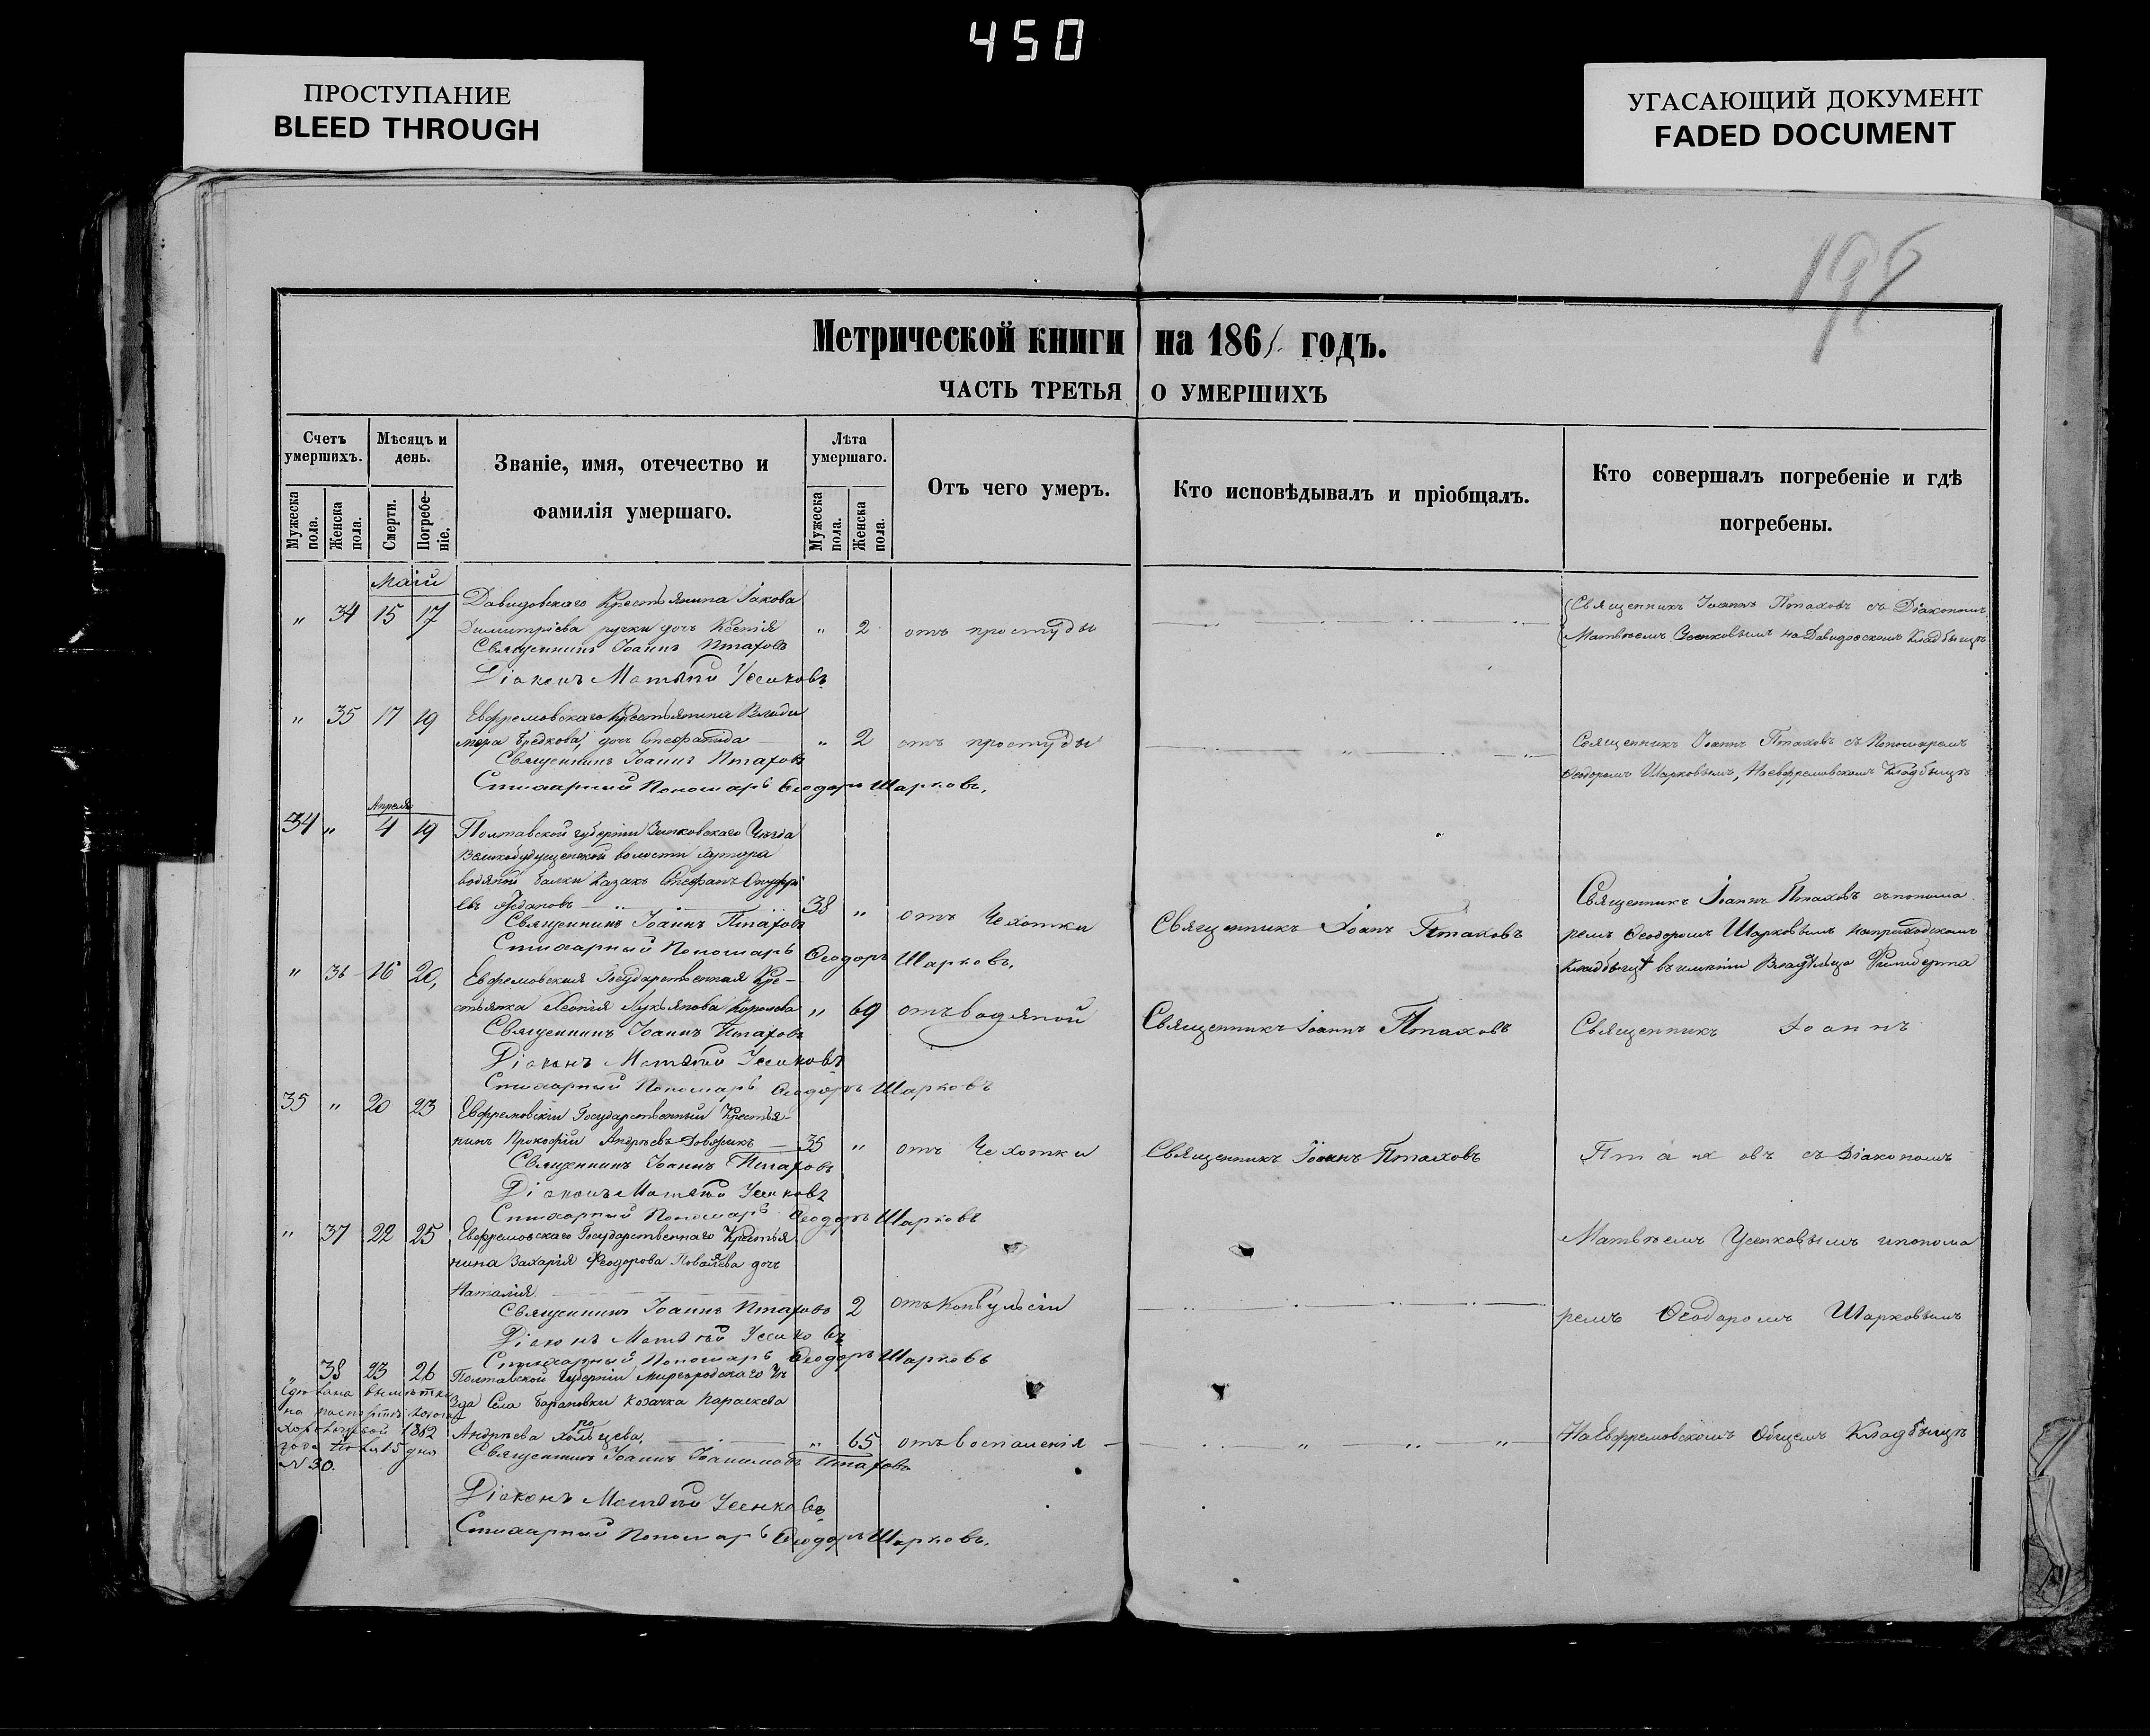 450
ПРОСТУПАНИЕ
BLEED THROUGH
УГАСАЮЩИЙ ДОКУМЕНТ
FADED DOCUMENT
Метрической книги на 186 годъ.
ЧАСТЬ ТРЕТЬЯ О УМЕРШИХЪ
Счетъ умершихъ.
Мѣсяцъ и день.
Званіе, имя, отечество и
фамилія умершаго.
Лѣта умершаго.
Отъ чего умеръ.
Кто исповѣдывалъ и пріобщалъ.
Кто совершалъ погребеніе и гдѣ
погребены.
Мужеска пола.
Женска пола.
Смерти.
Погребе-ніе.
Мужеска пола.
Женска пола.
Маій
Давидовскаго Крестьянина Іакова
„ 34 15 17 Димитріева дочь Ксенія „ 2 отъ простуды
Священникъ Іоаннъ Птаховъ
Діаконъ Матвѣй Усенковъ
Священникъ Іоаннъ Птаховъ съ Діакономъ
Матвѣемъ Усенковымъ на Давидовскомъ Кладбищѣ
„ 35 17 19 Евфремовскаго Крестьянина Влади
мера дочь Стефанида „ 2 отъ простуды
Священникъ Іоаннъ Птаховъ
Стихарный Пономарь Ѳеодоръ Шарковъ.
Священникъ Іоаннъ Птаховъ съ Пономаремъ
Ѳеодоромъ Шарковымъ, На евфремовскомъ Кладбищѣ
Апреля
34 „ 4 19 Полтавской губерніи Зинковскаго Уѣзда
волости хутора
водяной балки Казакъ Стефанъ Онуфрі
евъ Ждановъ 38 „ отъ Чехотки Священникъ Іоанъ Птаховъ
Священникъ Іоаннъ Птаховъ
Стихарный Пономарь Ѳеодоръ Шарковъ.
Священникъ Іоаннъ Птаховъ съ понома
ремъ Ѳеодоромъ Шарковымъ
въ имѣніи Владѣльца
„ 36 16 20, Евфремовская Государственная Кре-
стьянка Ксенія Лукьянова Королева „ 69 отъ водяной Священникъ Іоаннъ Птаховъ
Священникъ Іоаннъ Птаховъ
Діаконъ Матвѣй Усенковъ
Стихарный Пономарь Ѳеодоръ Шарковъ
Священникъ Іоаннъ
35 „ 20 23 Евфремовскій Государственный Крестья-
нинъ Прокофій Андреевъ 35 „ отъ Чехотки Священникъ Іоаннъ Птаховъ
Священникъ Іоаннъ Птаховъ
Діаконъ Матвѣй Усенковъ
Стихарный Пономарь Ѳеодоръ Шарковъ
Птаховъ съ Діакономъ
„ 37 22 25 Евфремовскаго Государственнаго Крестья
нина Захарія Ѳеодорова дочь
Наталія 2 отъ Конвульсіи
Священникъ Іоаннъ Птаховъ
Діаконъ Матвѣй Усенковъ
Стихарный Пономарь Ѳеодоръ Шарковъ
Матвѣемъ Усенковымъ и понома
ремъ Ѳеодоромъ Шарковымъ
„ 38 23 26 Полтавской Губерніи Миргородскаго Уѣ
зда Села Барановки козачка Параскева
Андреева „ 65 отъ воспаленія
1862
года 15 дня
№ 30.
Священникъ Іоаннъ Птаховъ
Діаконъ Матвѣй Усенковъ
Стихарный Пономарь Ѳеодоръ Шарковъ.
На Евфремовскомъ Общемъ Кладбищѣ